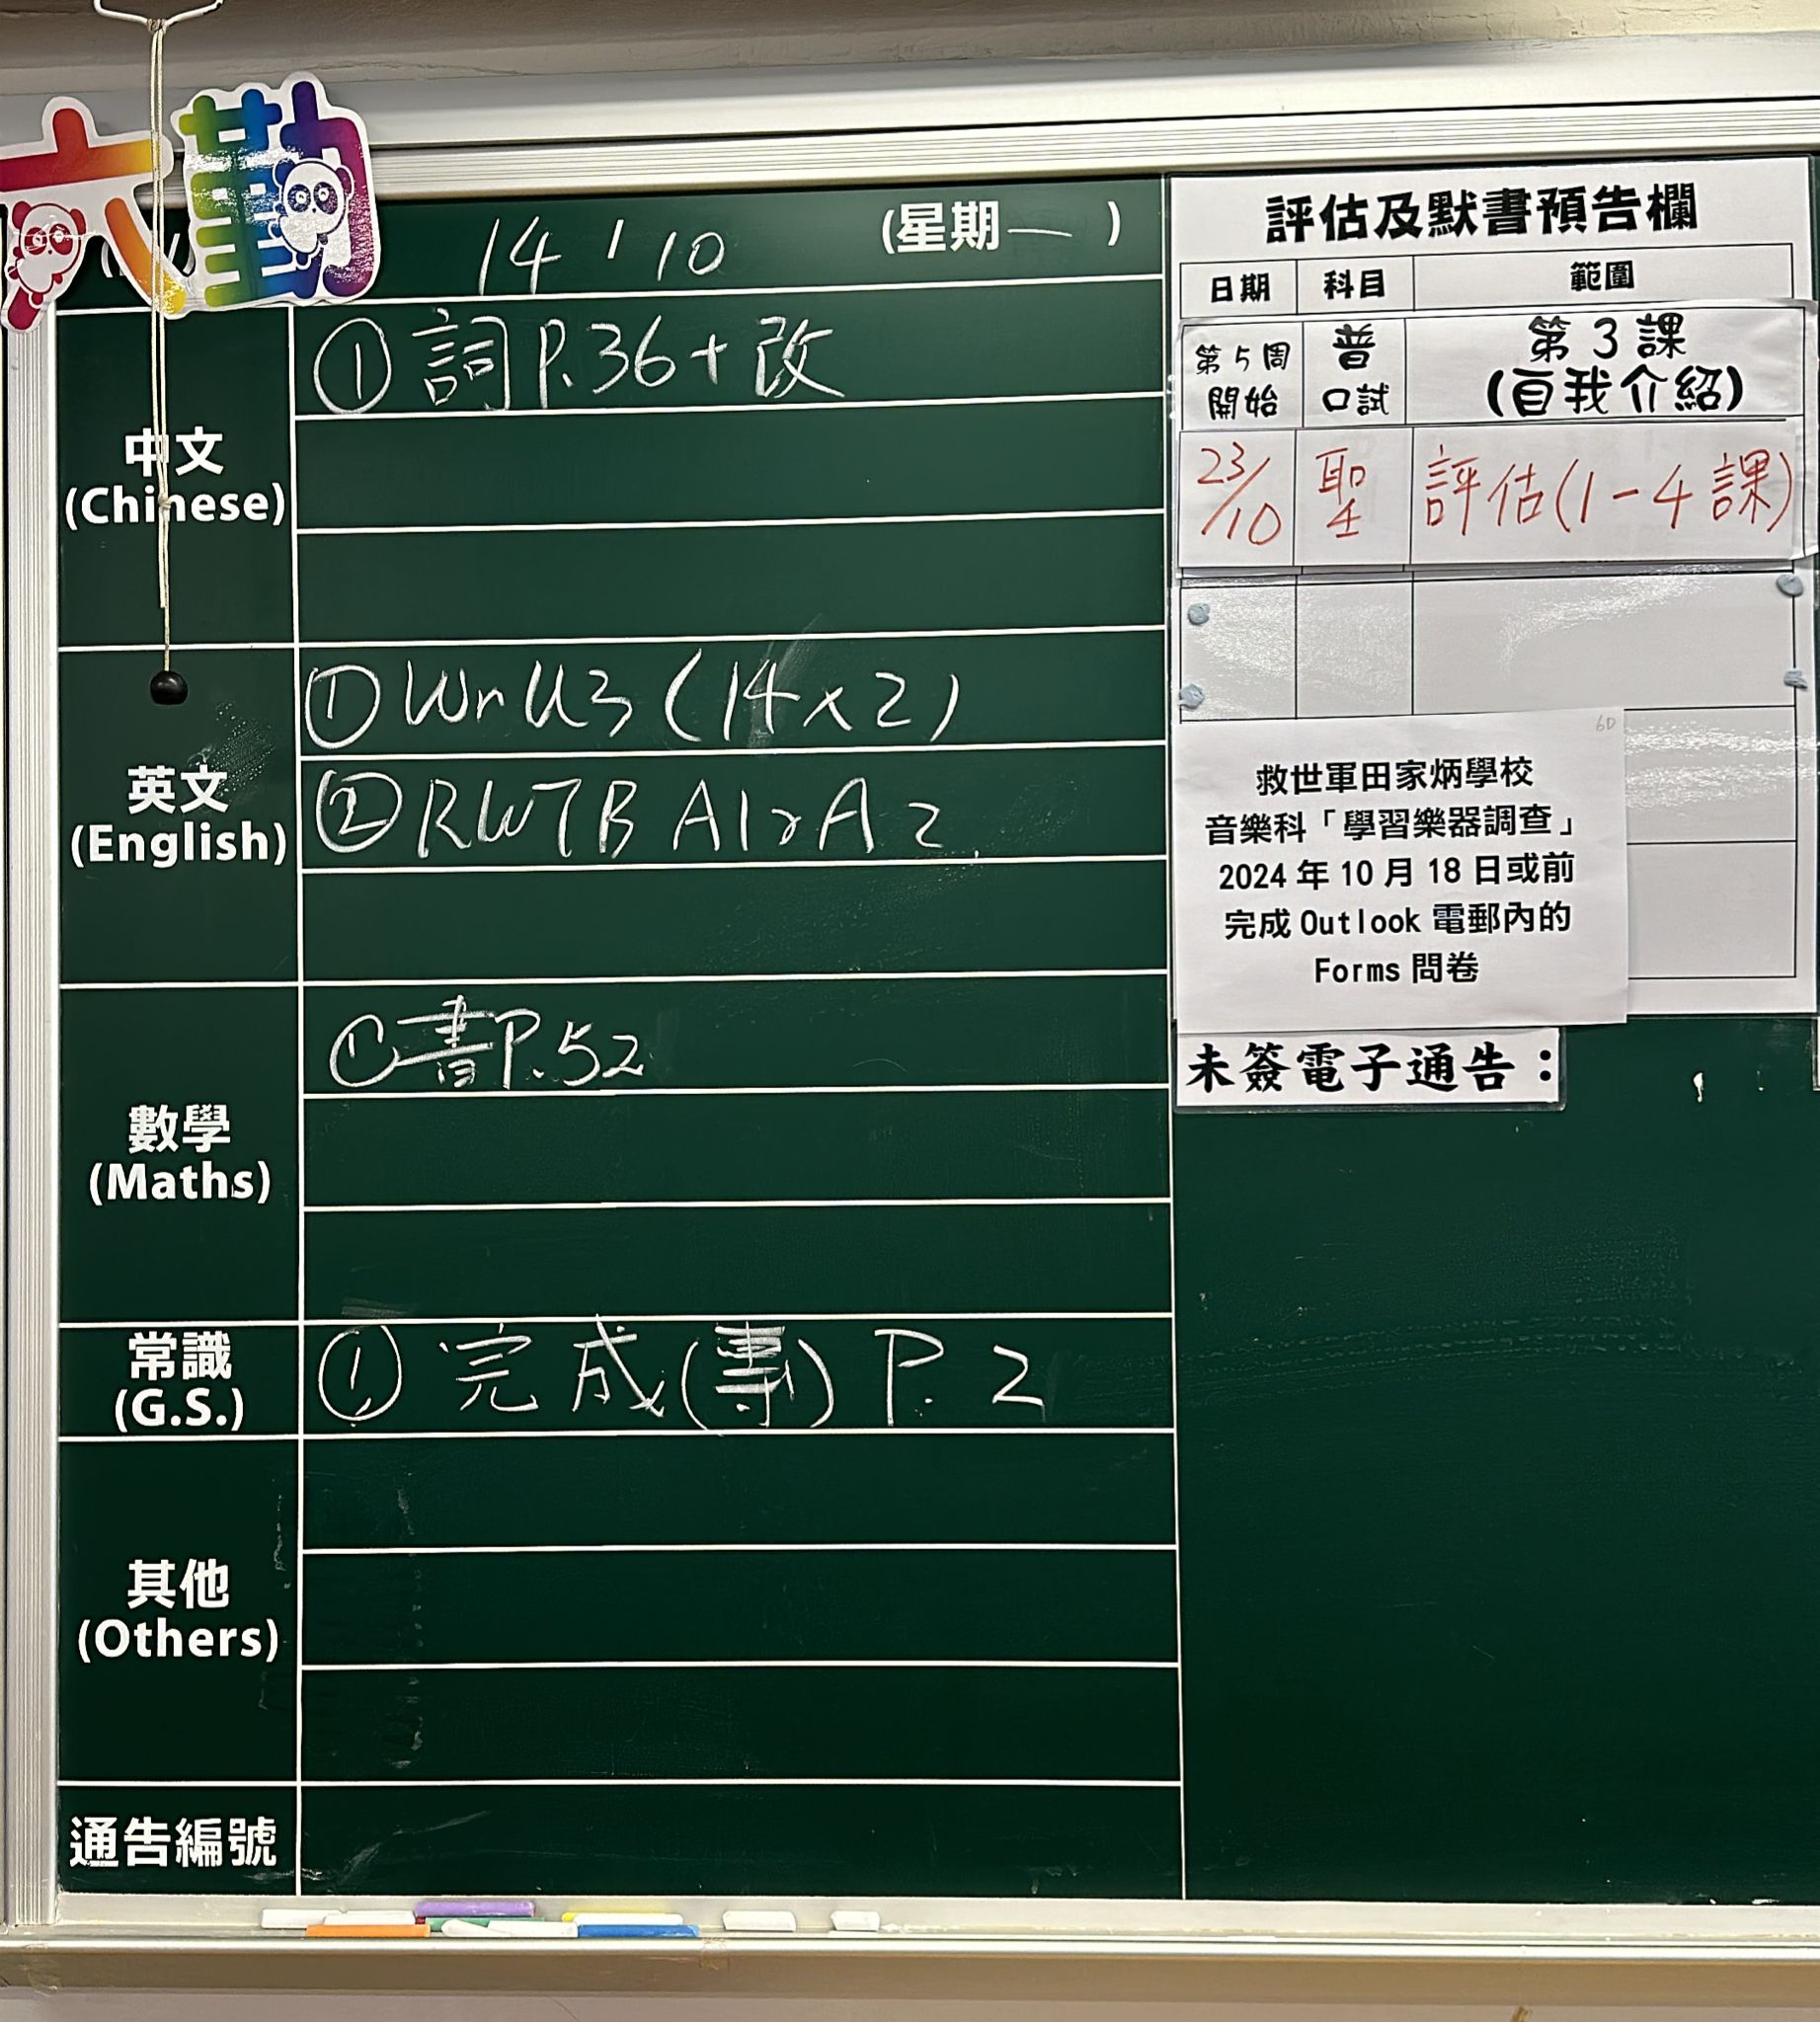 六勤
14 / 10 (星期一 )
中文
(Chinese)
① 詞 P.36 + 改
英文
(English)
① Wr U3 (14x2)
② RWTB A1 A2
數學
(Maths)
① 書 P.52
常識
(G.S.)
① 完成(專) P. 2
其他
(Others)
通告編號
評估及默書預告欄
日期 科目 範圍
第5周
開始
普
口試
第3課
(自我介紹)
23/10 聖 評估(1-4課)
6D
救世軍田家炳學校
音樂科「學習樂器調查」
2024 年 10 月 18 日或前
完成 Outlook 電郵內的
Forms 問卷
未簽電子通告：